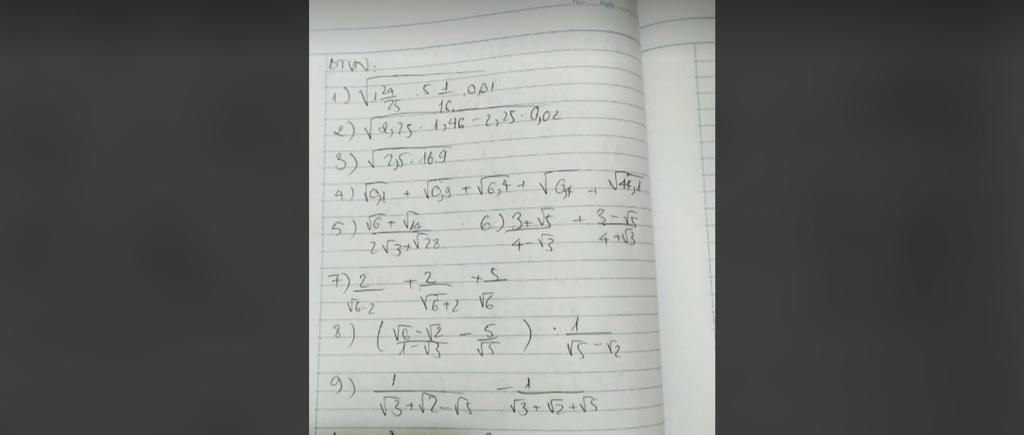 Thứ Ngày
ĐTVN:
1) √(1 24/25 · 5 1/16 · 0,01)
2) √(2,25 · 1,46 - 2,25 · 0,02)
3) √(2,5 · 16,9)
4) √0,1 + √0,9 + √6,4 +
5) (√6 + √14)/(2√3 + √28) 6) (3 + √5)/(4 - √3) + (3 - √5)/(4 + √3)
7) 2/(√6 - 2) + 2/(√6 + 2) + 5/√6
8) ((√6 - √2)/(1 - √3) - 5/√5) · 1/(√5 - √2)
9) 1/(√3 + √2 - √5) - 1/(√3 + √2 + √5)